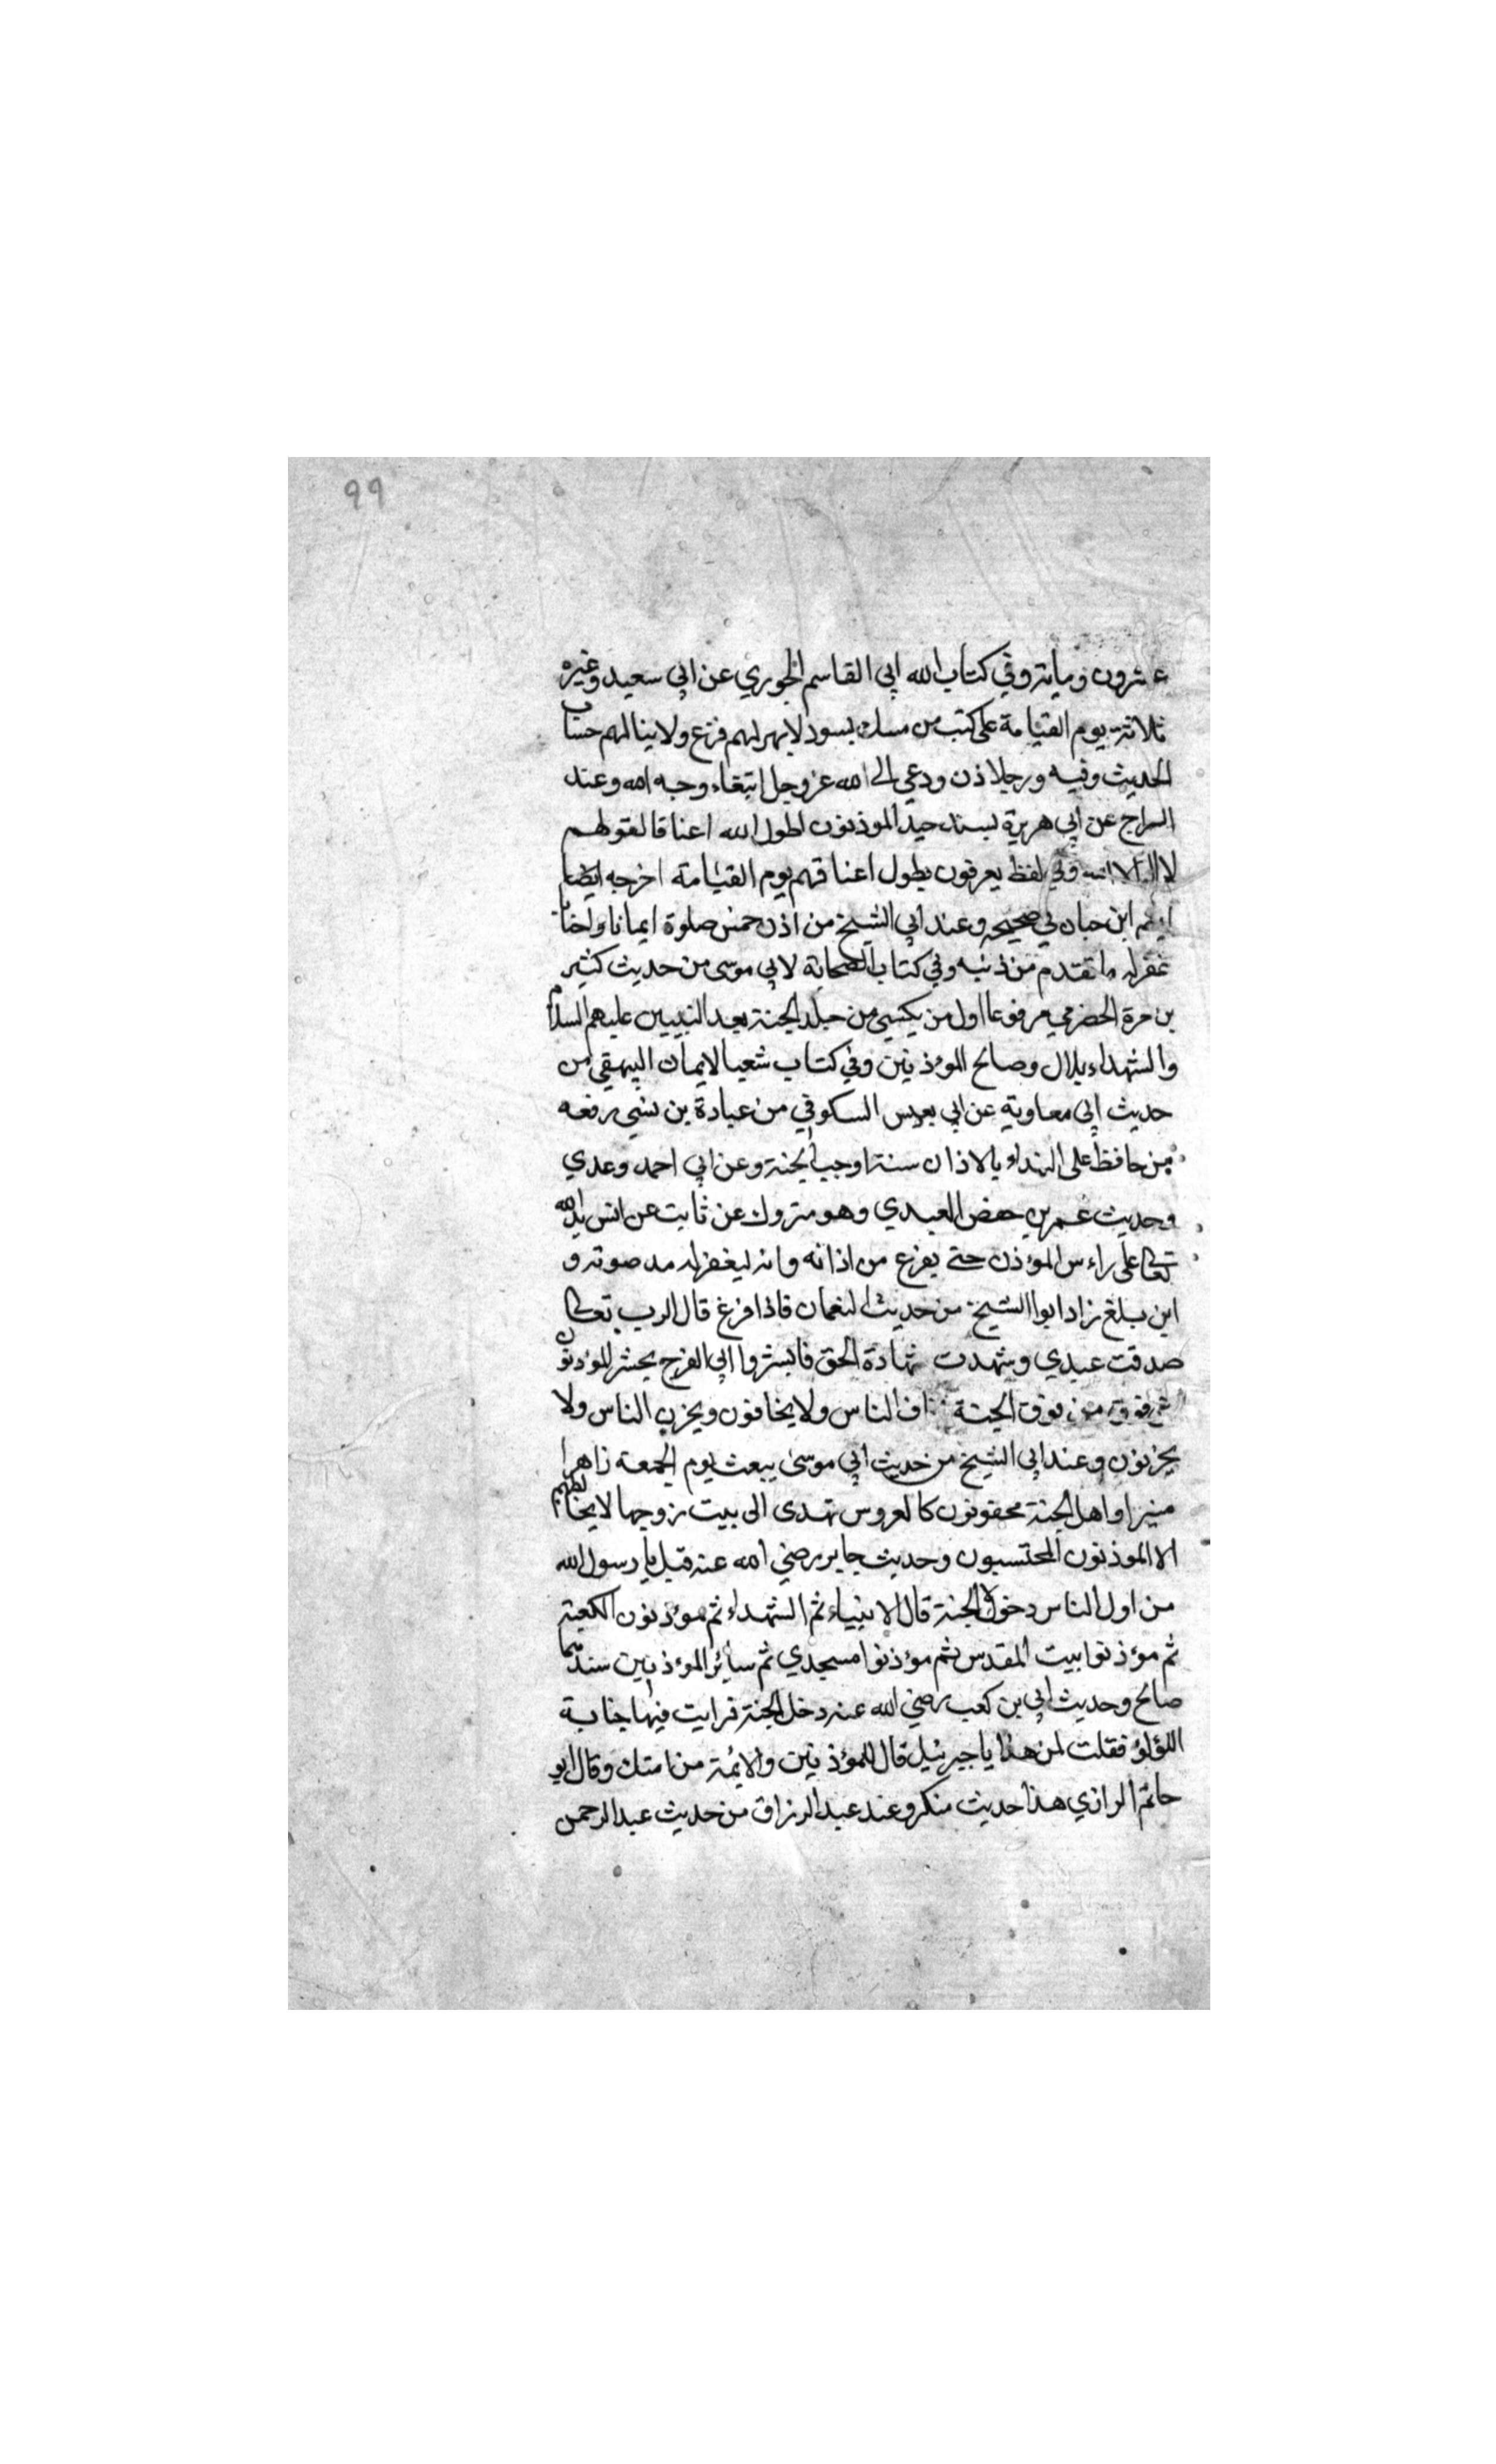 ٩٩
عشرون ومأية وفي كتاب الله ابي القاسم الجوري عن ابي سعيد وغيره
ثلاثة يوم القيامة على كتب من مسك يسود لايهر لهم فزع ولاينالهم حساب
الحديث وفيه ورجلا ذن ودعي الى الله عزوجل ابتغاء وجه الله وعند
السراج عن ابي هريرة بسند جيد الموذنون اطول الله اعناقا لقولهم
لااله الاالله وفي لفظ يعرفون بطول اعناقهم يوم القيامة اخرجه ايضا
ابن حبان في صحيحه وعند ابي الشيخ من اذن خمس صلوة ايمانا واحتا
غفرله ماتقدم من ذنبه وفي كتاب الصحابة لابي موسى من حديث كثير
بن مرة الحضرمي مرفوعا اول من يكسي من حلد الجنة بعد النبيين عليهم السلام
والشهداء بلال وصالح المؤذنين وفي كتاب شعب الايمان البيهقي من
حديث ابي معاوية عن ابي يعيس السكوفي من عبادة بن نسي رفعه
من حافظ على النداء بالاذان سنة اوجب الجنة وعن ابي احمد وعدي
وحديث عمر بن حفص العبدي وهو متروك عن ثابت عن انس يدالله
تعالى على راءس المؤذن حتى يفرغ من اذانه وانه ليغفرله مد صوته و
اين بلغ زاد ابوا الشيخ من حديث النعمان فاذا فرغ قال الرب تعالى
صدقت عبدي وشهدت شهادة الحق فابشروا ابي الفرج يحشر المؤذنون
من نوق الجنة الناس ولايخافون ويحزن الناس ولا
يحزنون وعند ابي الشيخ من حديث ابي موسى يبعث يوم الجمعة زاهرا
منيرا واهل الجنة محفوفون كالعروس تهدى الى بيت زوجها لايخالطهم
الا الموذنون المحتسبون وحديث جابر رضي الله عنه قيل يا رسول الله
من اول الناس دخولا الجنة قال الانبياء ثم الشهداء ثم مؤذنون الكعبة
ثم مؤذنوا بيت المقدس ثم مؤذنوا مسجدي ثم سائر المؤذنين سندهما
صالح وحديث ابي بن كعب رضي الله عنه دخل الجنة فرايت فيها جنابة
اللؤلؤ فقلت لمن هذا يا جبرئيل قال للمؤذنين والائمة من امتك وقال ابو
حاتم الرازي هذا حديث منكر وعند عبد الرزاق من حديث عبد الرحمن